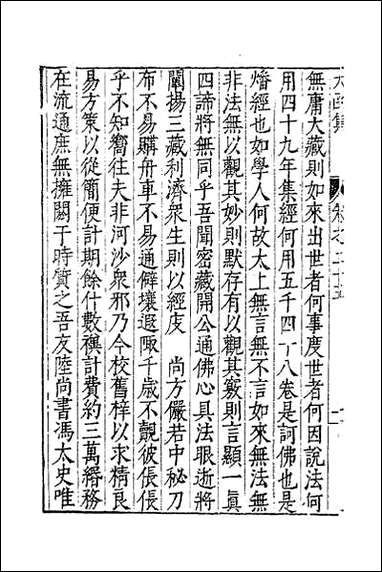 太函集 卷之二十五
無庸大藏則如來出世者何事度世者何因說法何
用四十九年集經何用五千四百八卷是訶佛也是
燔經也如學人何故太上無言無不言如來無法無
非法無以觀其妙則默存有以觀其竅則言顯一眞
四諦將無同乎吾聞密藏開公通佛心具法眼逝將
闡揚三藏利濟衆生則以經庋　尚方儼若中秘刀
布不易購舟車不易通僻壤遐陬千歲不覿彼倀倀
乎不知嚮往夫非河沙衆邪乃今校舊梓以求精良
易方策以從簡便計期餘什數禩計費約三萬緡務
在流通庶無擁閼于時質之吾友陸尚書馮太史唯